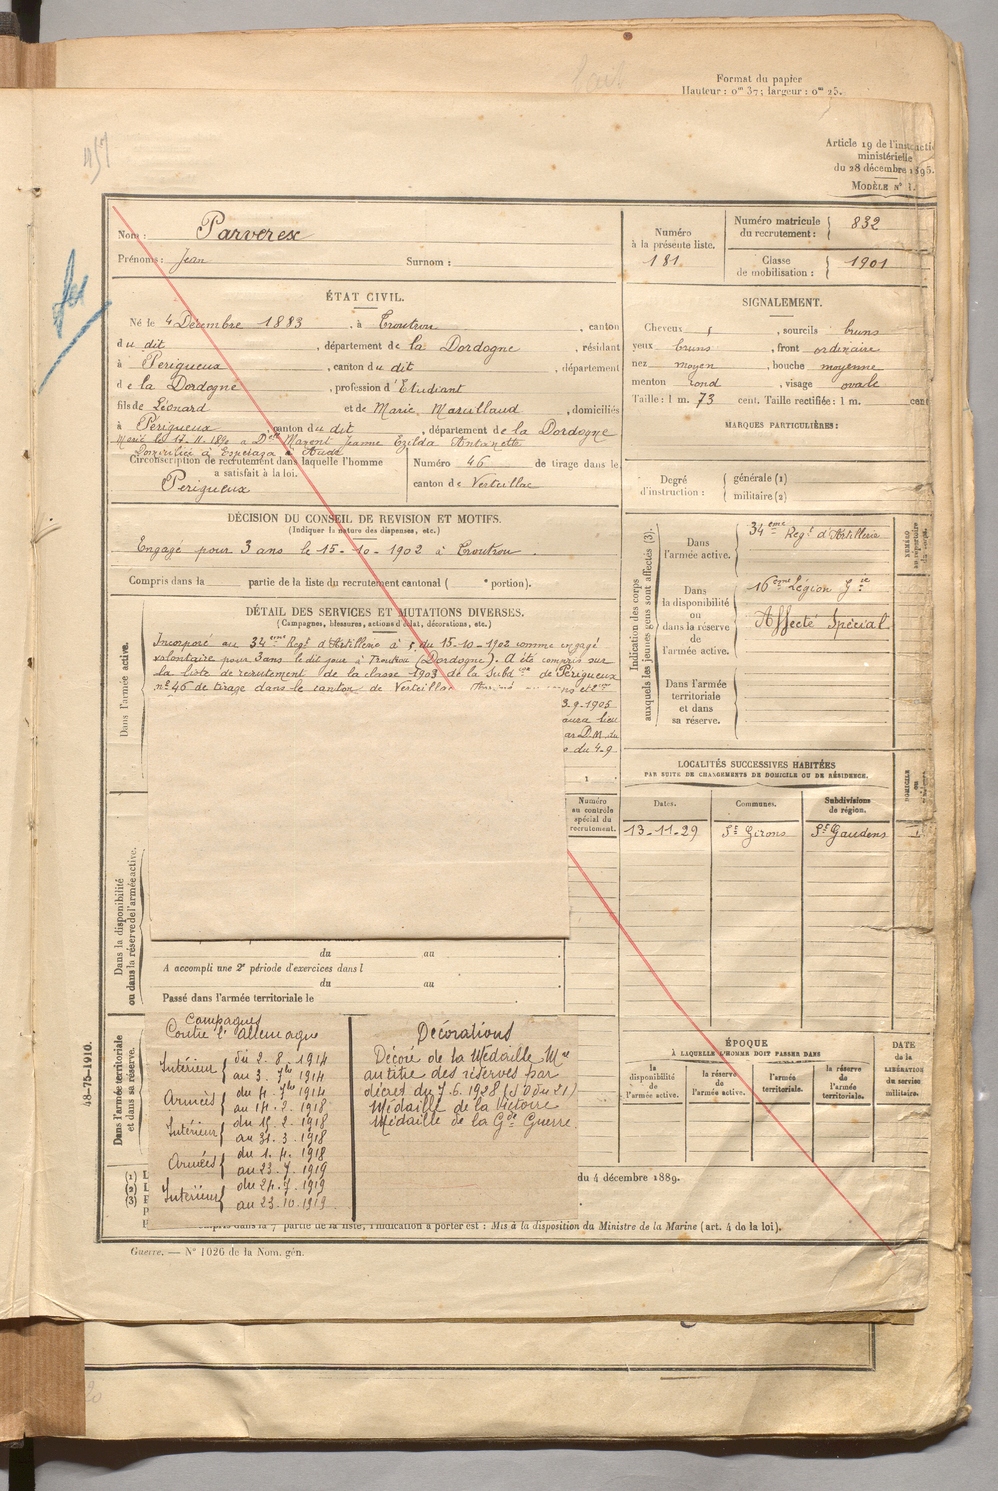 Format du papier
Hauteur : 0m 37; largeur : 0m 25.
Article 19 de l'instructi
ministérielle
du 28 décembre 1895.
MODÈLE N° 1.
Nom : Parverex
Prénoms : Jean Surnom :
Numéro
à la présente liste.
181
Numéro matricule
du recrutement : 832
Classe
de mobilisation : 1901
ÉTAT CIVIL.
Né le 4 Décembre 1883, à Croutrou, canton
du dit, département de la Dordogne, résidant
à Périgueux, canton du dit, département
de la Dordogne, profession d'Etudiant
fils de Léonard et de Marie, Marullaud, domiciliés
à Périgueux, canton du dit, département de la Dordogne
Marié le 17. 11. à Dlle Jeanne Ezilda Antoinette
Domicilié à Esperaza Aude
Circonscription de recrutement dans laquelle l'homme
a satisfait à la loi.
Perigueux
Numéro 46 de tirage dans le
canton de Verteillac
SIGNALEMENT.
Cheveux , sourcils bruns
yeux bruns, front ordinaire
nez moyen, bouche moyenne
menton rond, visage ovale
Taille : 1 m. 73 cent. Taille rectifiée : 1 m. cent
MARQUES PARTICULIÈRES :
Degré
d'instruction :
générale (1)
militaire (2)
DÉCISION DU CONSEIL DE REVISION ET MOTIFS.
(Indiquer la nature des dispenses, etc.)
Engagé pour 3 ans le 15-10-1902 à Croutrou.
Compris dans la partie de la liste du recrutement cantonal ( e portion).
DÉTAIL DES SERVICES ET MUTATIONS DIVERSES.
(Campagnes, blessures, actions d'éclat, décorations, etc.)
Dans l'armée active.
Incorporé au 34eme Regt d'Artillerie à du 15-10-1902 comme engagé
volontaire pour 3 ans le dit jour à (Dordogne). A été compris sur
la liste de recrutement de la classe 1903 de la Subdon de Périgueux
n° 46 de tirage dans le canton de Verteillac
3.9.1905
aura lieu
par D.M. du
du 4-9
Numéro
au contrôle
spécial du
recrutement.
Indication des corps
auxquels les jeunes gens sont affectés (3).
Dans
l'armée active.
34eme Regt d'Artillerie
Dans
la disponibilité
ou
dans la réserve
de
l'armée active.
16eme Légion Gie
Affecté Spécial
Dans l'armée
territoriale
et dans
sa réserve.
LOCALITÉS SUCCESSIVES HABITÉES
PAR SUITE DE CHANGEMENTS DE DOMICILE OU DE RÉSIDENCE.
Dates. Communes. Subdivisions
de région.
13-11-29 St Girons St Gaudens
Dans la disponibilité
ou dans la réserve de l'armée active.
du au .
A accompli une 2e période d'exercices dans l
du au
Passé dans l'armée territoriale le
Dans l'armée territoriale
et dans sa réserve.
Campagnes
Contre l'Allemagne
Intérieur { du 2-8-1914
au 3-7bre 1914
Armées { du 4-7bre 1914
au 14-2-1918
Intérieur { du 15-2-1918
au 31-3-1918
Armées { du 1-4-1918
au 23-7-1919
Intérieur { du 24-7-1919
au 23-10-1919
Décorations
Décoré de la Médaille Mre
au titre des réserves par
décret du 7.6.1928 (J.O du 21)
Médaille de la Victoire
Médaille de la Gde Guerre
ÉPOQUE
À LAQUELLE L'HOMME DOIT PASSER DANS
la
disponibilité
de
l'armée active.
la réserve
de
l'armée active.
l'armée
territoriale.
la réserve
de
l'armée
territoriale.
DATE
de la
LIBÉRATION
du service
militaire.
du 4 décembre 1889.
(1)
(2)
(3)
compris dans la 7e partie de la liste, l'indication à porter est : Mis à la disposition du Ministre de la Marine (art. 4 de la loi).
Guerre. — N° 1026 de la Nom. gén.
48-75-1910.